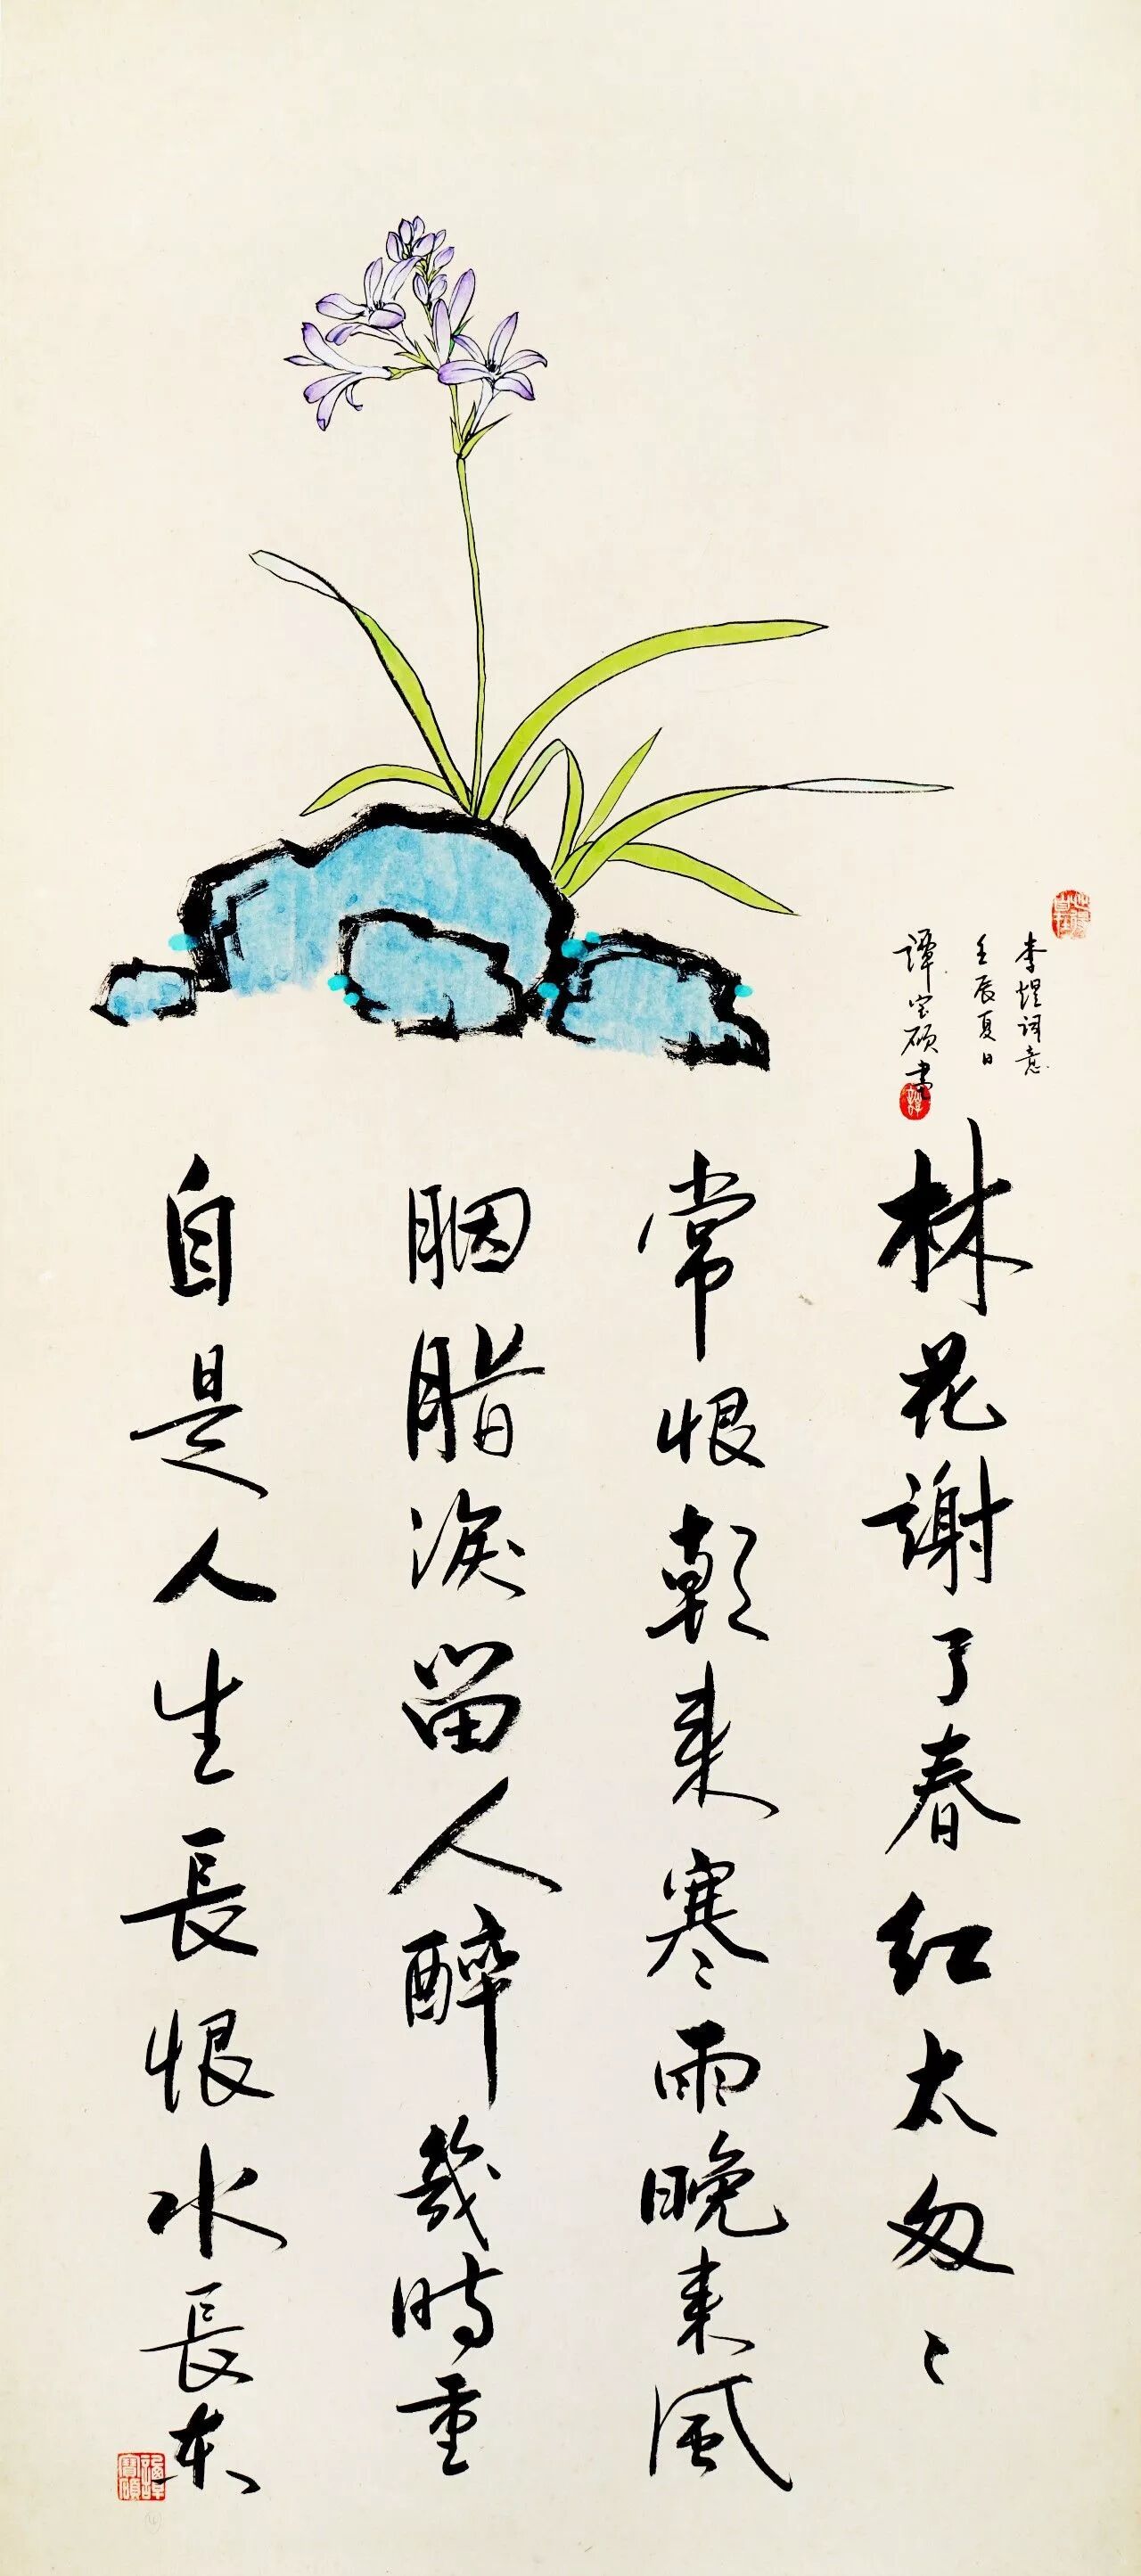 李煜词意
壬辰夏日
譚宝硕書
譚
林花謝了春红太匆〻
常恨朝来寒雨晚来風
胭脂淚留人醉幾時重
自是人生長恨水長东
譚寶碩